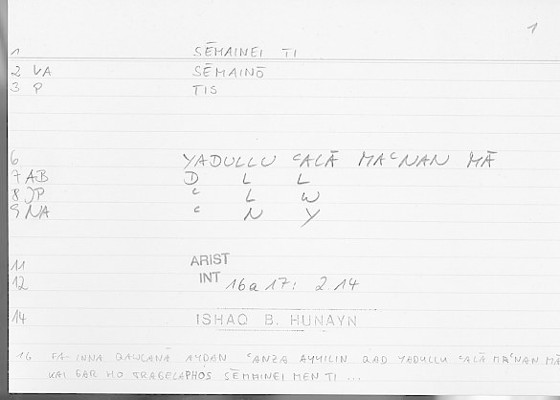 1
1 SĒMAINEI TI
2 VA SĒMAINŌ
3 P TIS
6 YADULLU ʿALĀ MAʿNAN MĀ
7 AB D L L
8 JP ʿ L W
9 NA ʿ N Y
11 ARIST
12 INT 16a17: 2.14
14 ISHAQ B. HUNAYN
16 FA-INNA QAWLANĀ AYDAN ʿANZA AYYILIN QAD YADULLU ʿALĀ MAʿNAN MĀ
KAI GAR HO TRAGELAPHOS SĒMAINEI MEN TI ...